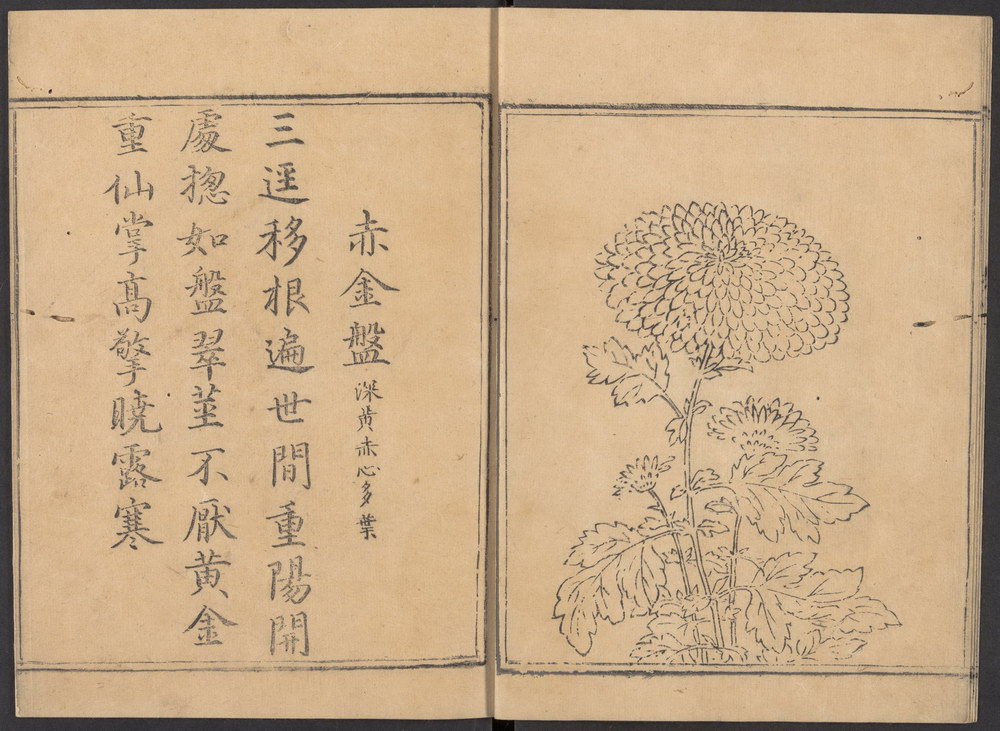 赤金盤 深黄赤心多葉
三逕移根遍世間重陽開
處揔如盤翠莖不厭黄金
重仙掌高擎曉露寒